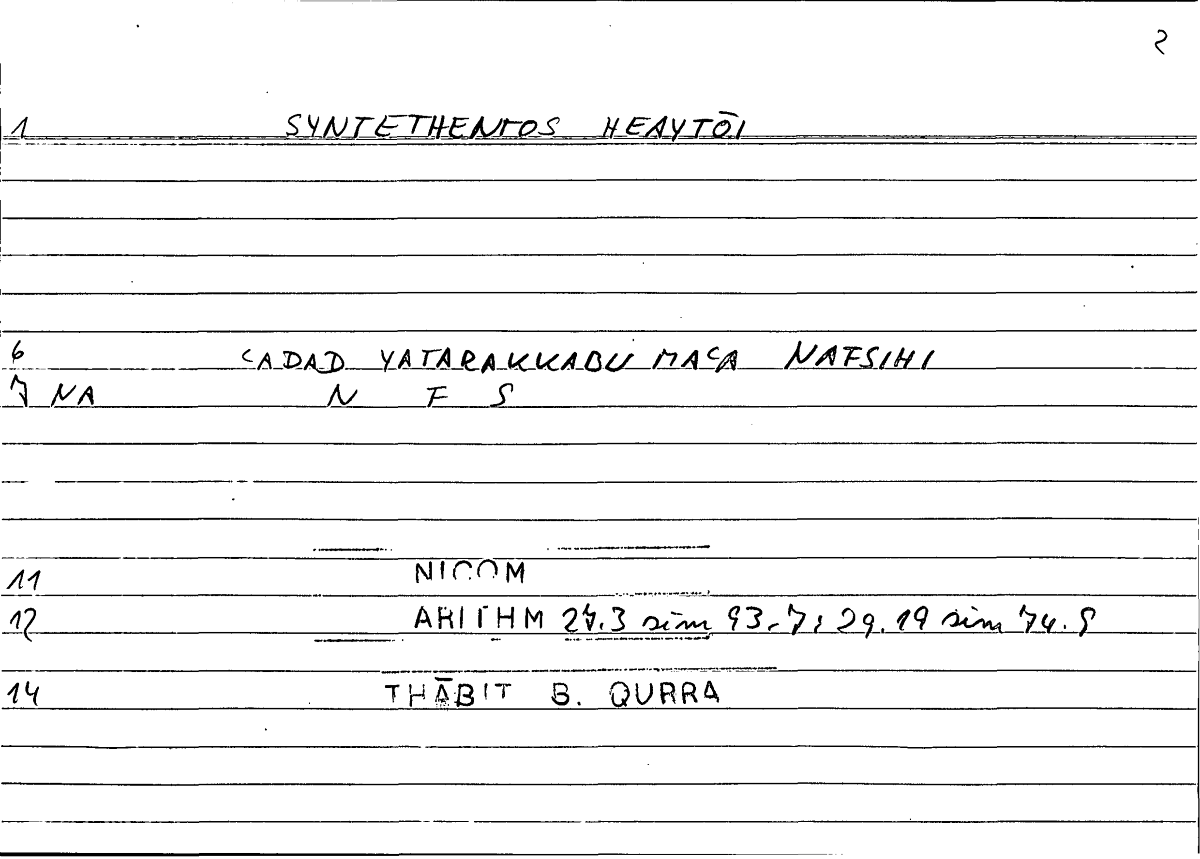 2
1 SYNTETHENTOS HEAYTŌI
6 ʿADAD YATARAKKABU MAʿA NAFSIHI
7 NA N F S
11 NICOM
12 ARITHM 27.3 sim 93.7; 29.19 sim 74.9
14 THĀBIT B. QURRA